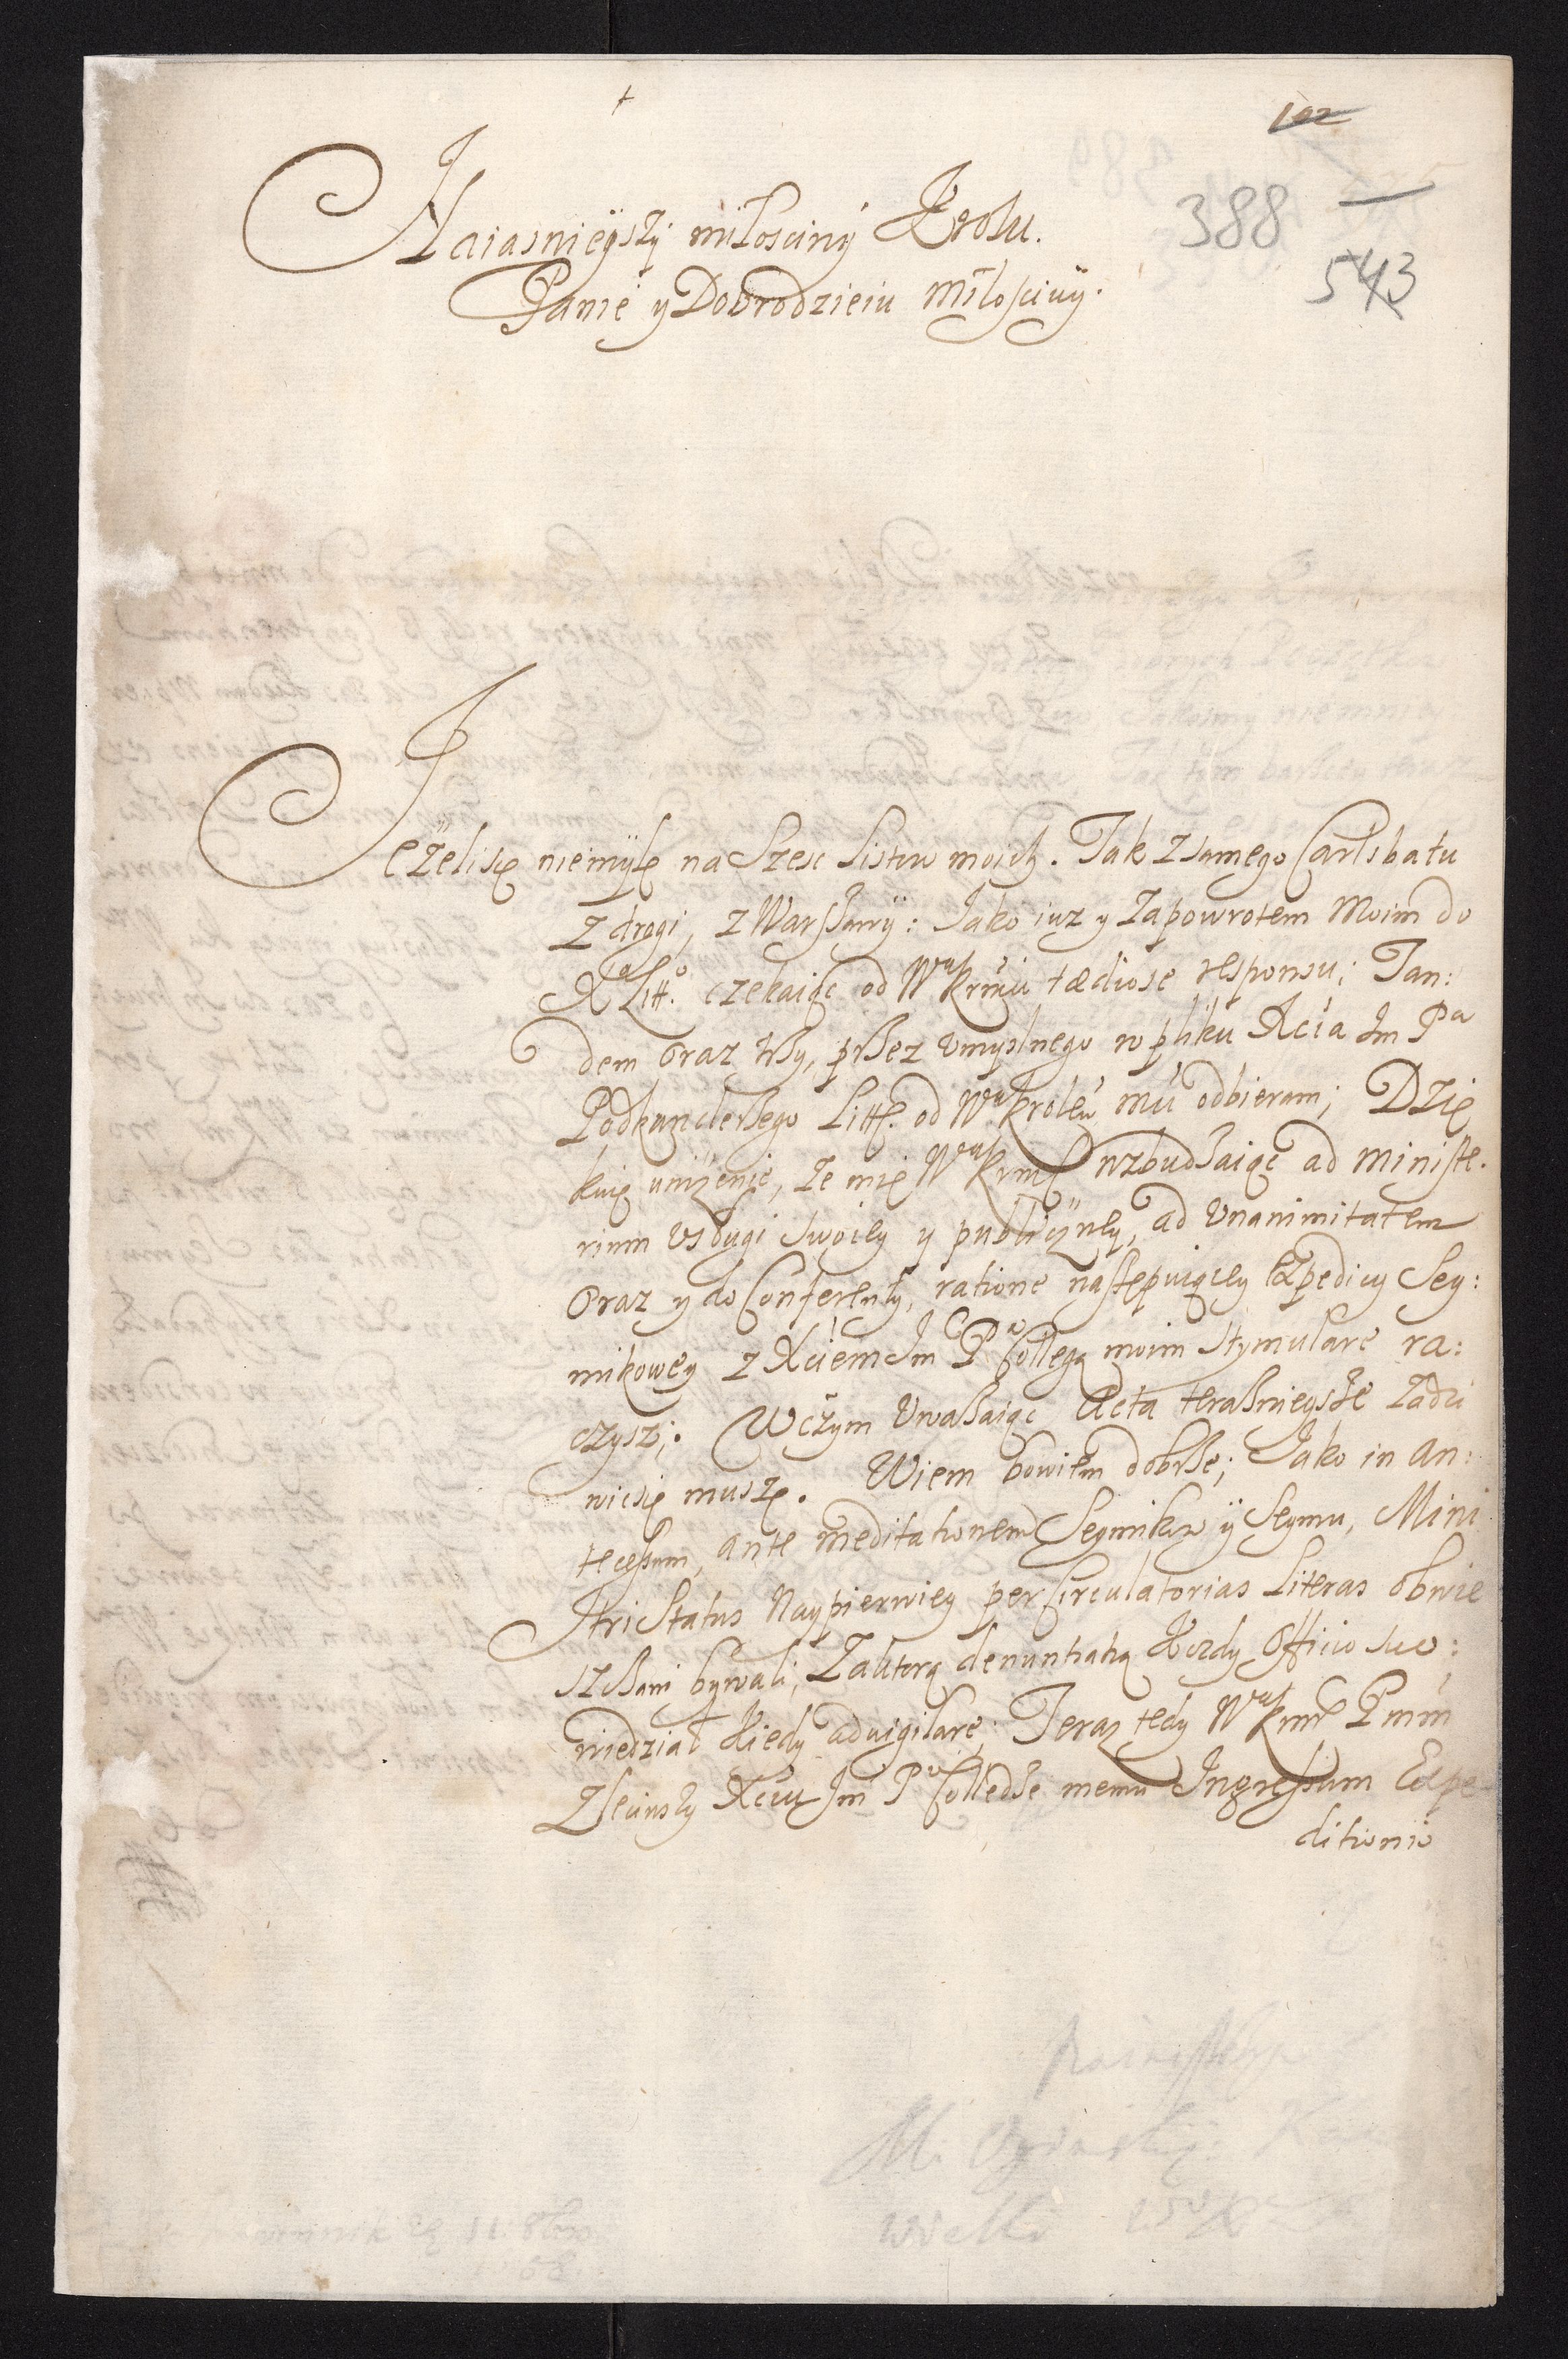 102
388
543
Naiasnieyszÿ miłosciwÿ Krolu.
Panie y Dobrodzieiu Miłosciwy.
Jeżelisię niemÿlę na Szesc Listow moich. Tak z samego Carlsbatu
z drogi, z Warszawÿ: Jako iuz y zapowrotem Moim do
X Litt.º czekaiąc od Wa Krmsci tædiose responsu; Tan:
dem oraz trzy, przez umyslnego w pliku Xcia Im Pa
Podkanclerzego Litte. od Wa Krolew. msci odbieram; Dzię
kuię uniżenie, że mię Wa Krmsc wzbudzaiąc ad Ministe.
rium usługi Swoiey y publiczney, ad Unanimitatem
Oraz y do Conferenty, ratione następuiącey Expedicij Sey:
mikowey z Xciem Im Pª Collegą moim Stymulare ra:
czysz; Wczym Uważaiąc Acta teraznieysze zadzi
wicsię muszę. Wiem bowiem dobrze; Jako in an:
tecessum, ante meditationem Seymikow ÿ Seymu, Mini
stri Status Naypierwiey per Circulatorias Literas obwie
szczani bywali, Zaktorą denuntiatią Kozdy Officio suo:
wiedział kiedy advigilare; Teraz tedy Wa Krmsc P mm
Zleciwszy Xciu Im Pu Colledze memu Ingressum Expe
ditionis